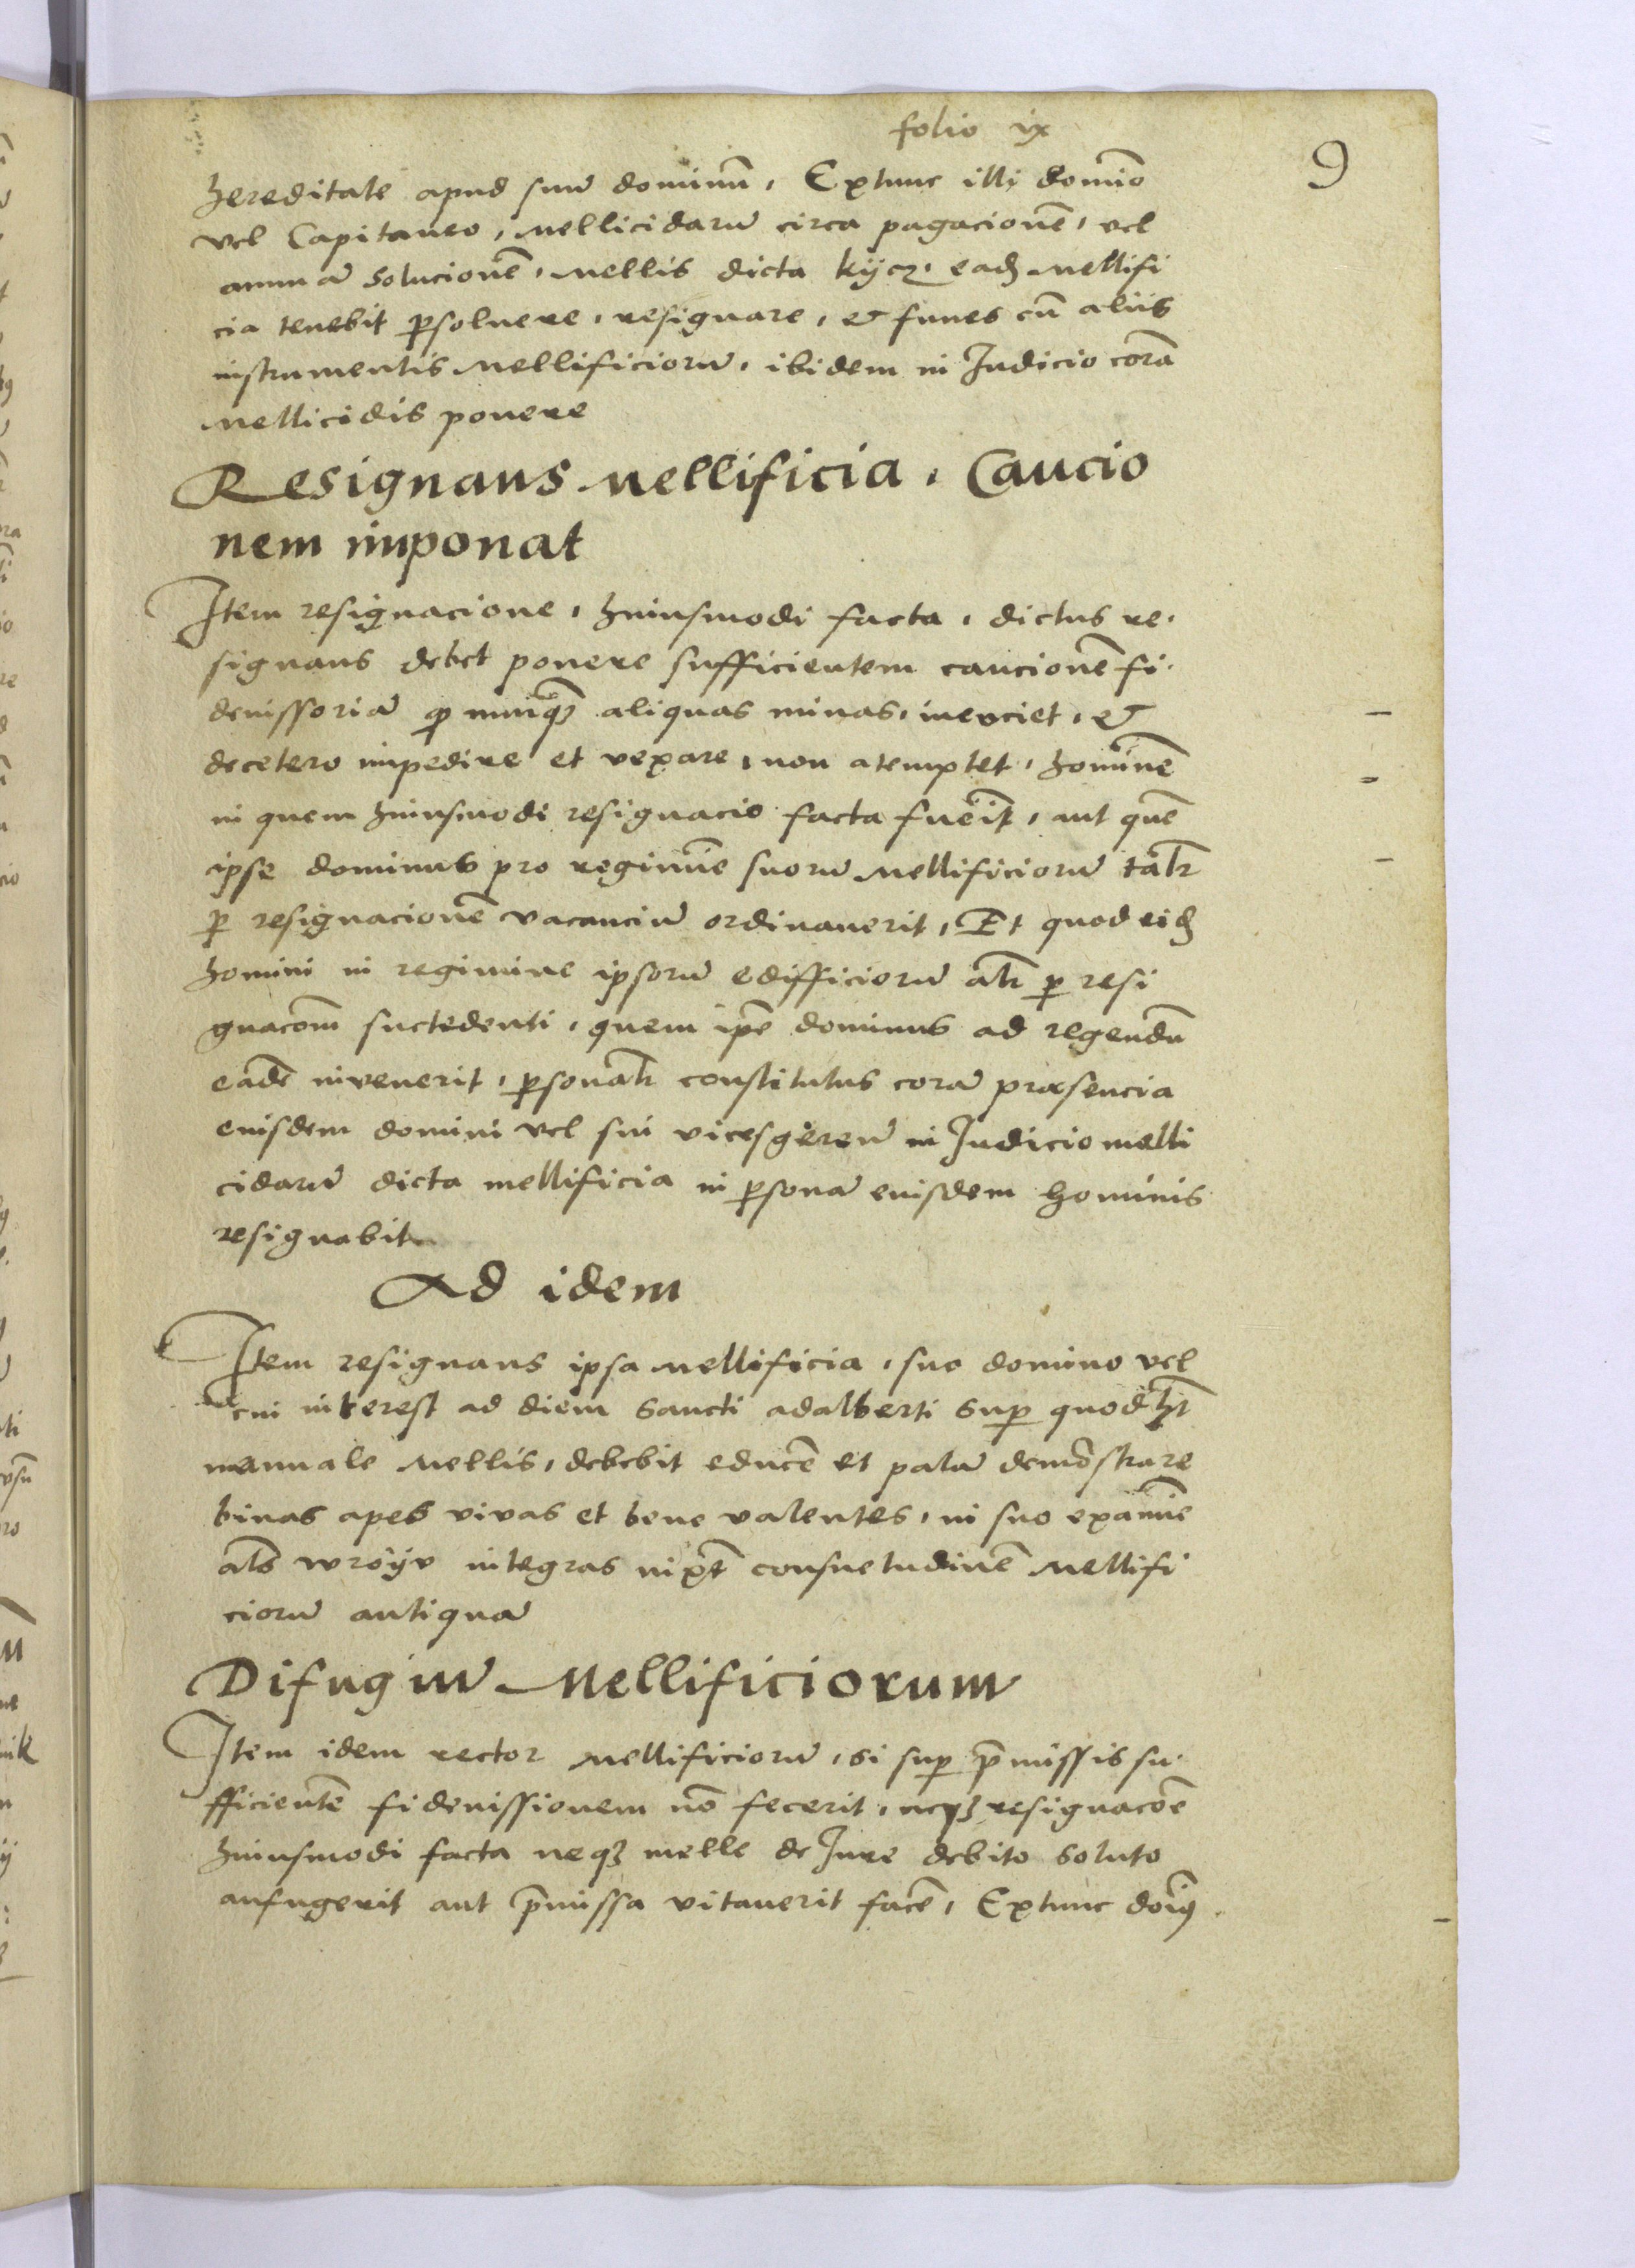 folio ix
9
hereditate apud suū dominū, Extunc illi domīo
vel Capitaneo, mellicidarū circa pagacionē, vel
annuā solucionē, mellis dicta kycz, eadē Mellifi
cia tenebit ꝑsoluere, resignare, & funes cū aliis
instrumentis Mellificiorū, ibidem in Iudicio corā
Mellicidis ponere
Resignans Mellificia, Caucio
nem imponat
Item resignacione, huiusmodi facta, dictus re,
signans debet ponere sufficientem caucionē fi,
deiussoriā ꝙ nunqꝫ aliquas minas, inerciet, &
decetero impedire et vexare, non atemptet, hominē
in quem huiusmodi resignacio facta fuerit, aut quē
ipse dominus pro regimīe suorū Mellificiorū talr̄
ꝑ resignacionē vacanciū ordinauerit, Et quod eidē
homini in regimine ipsorū edifficiorū alr̄ ꝑ resi
gnacōm succedenti, quem ip̄e dominus ad regendū
eadē invenerit, ꝑsonalr̄ constitutus corā præsencia
eiusdem domini vel sui vicesgerentū in Iudicio melli
cidarū dicta mellificia in ꝑsonā eiusdem hominis
resignabit
Ad idem
Item resignans ipsa Mellificia, suo domino vel
cui interest ad diem Sancti adalberti Suꝑ quod hꝫ
manuale Mellis, debebit educē et palā demōstrare
binas apes vivas et bene valentes, in suo examīe
als̄ wroyv integras iuxt̄ consuetudinē Mellifi
ciorū antiquā
Difugiū Mellificiorum
Item idem rector Mellificiorū, si suꝑ p̄missis su,
fficientē fideiussionem nō fecerit, neqꝫ resignacōē
huiusmodi facta neqꝫ melle de Iure debito soluto
aufugerit aut p̄missa vitauerit facē, Extunc doīꝰ